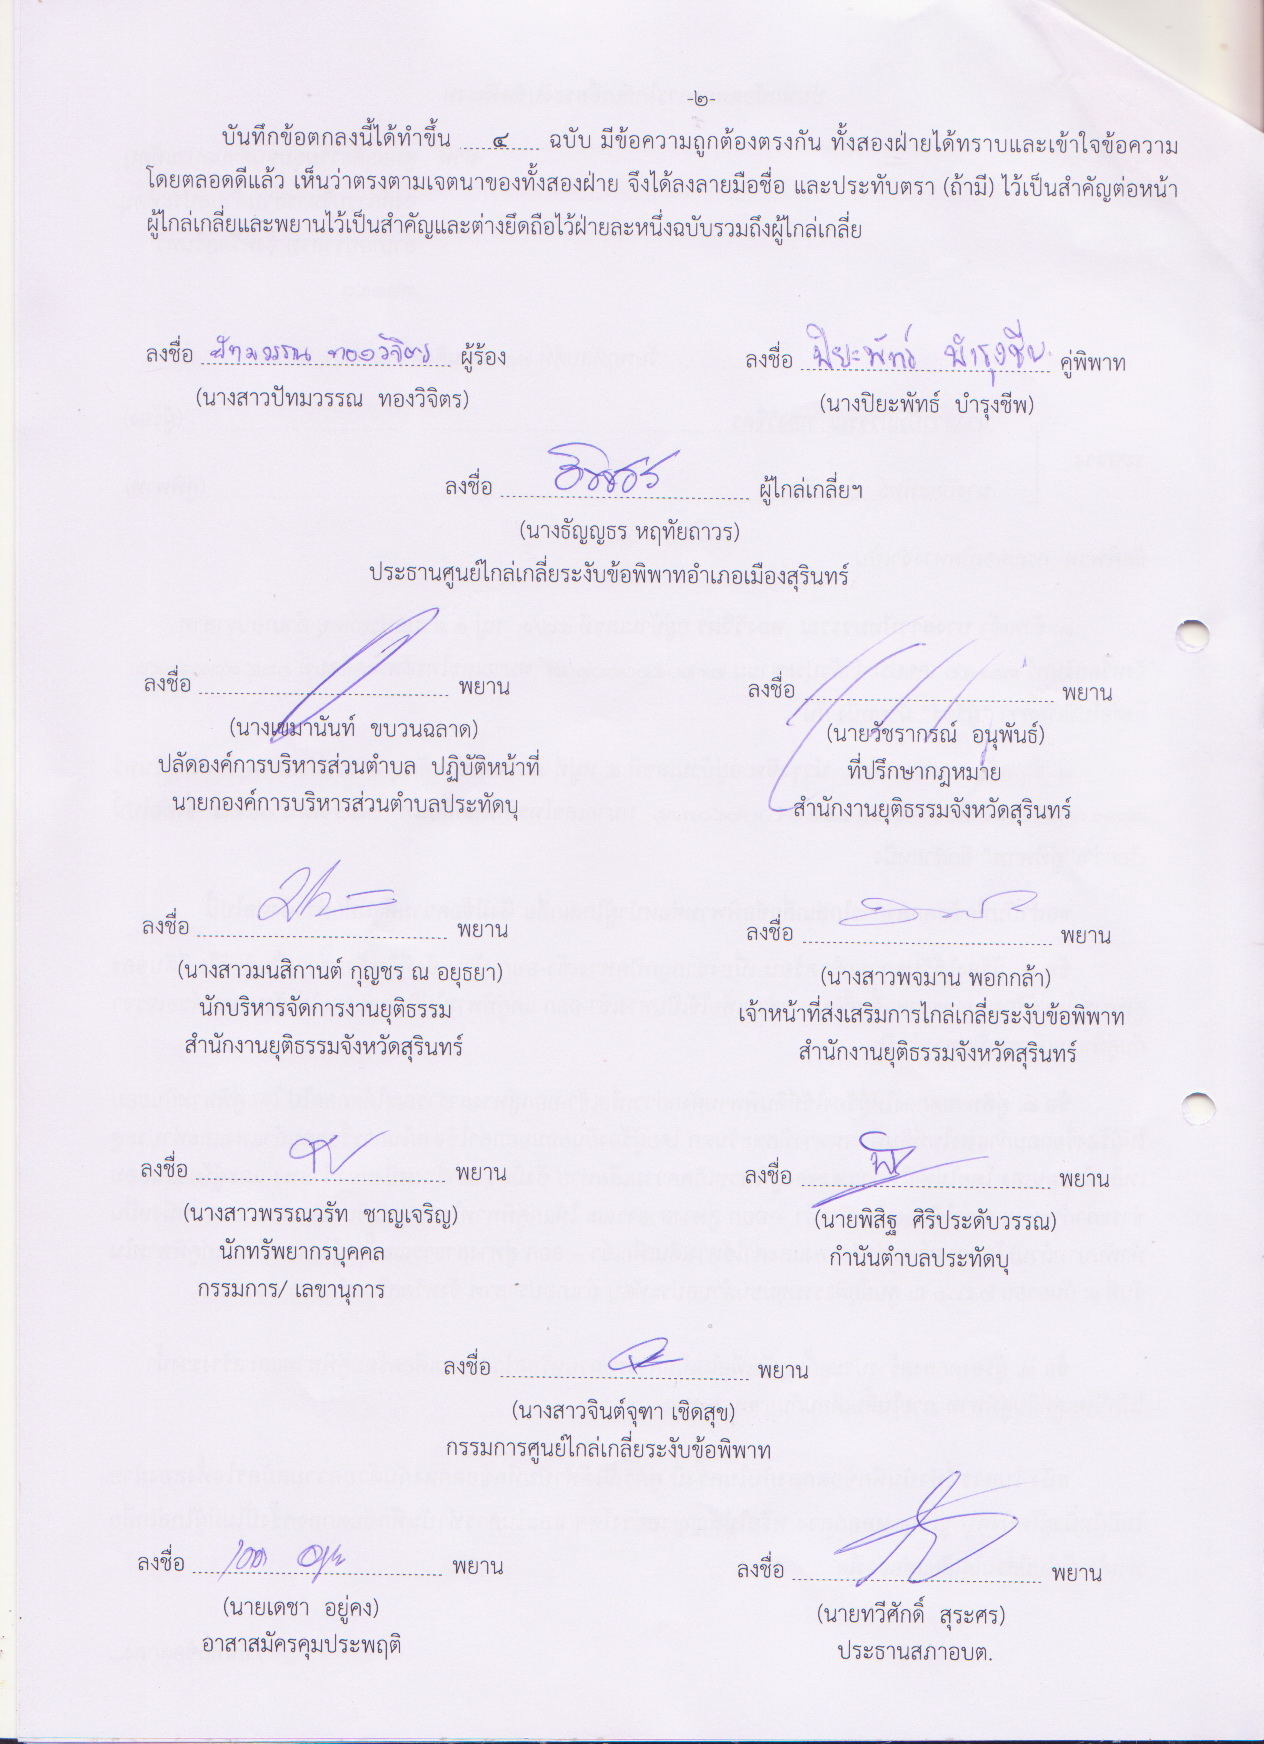 -๒-
บันทึกข้อตกลงนี้ได้ทำขึ้น ๔ ฉบับ มีข้อความถูกต้องตรงกัน ทั้งสองฝ่ายได้ทราบและเข้าใจข้อความ
โดยตลอดดีแล้ว เห็นว่าตรงตามเจตนาของทั้งสองฝ่าย จึงได้ลงลายมือชื่อ และประทับตรา (ถ้ามี) ไว้เป็นสำคัญต่อหน้า
ผู้ไกล่เกลี่ยและพยานไว้เป็นสำคัญและต่างยึดถือไว้ฝ่ายละหนึ่งฉบับรวมถึงผู้ไกล่เกลี่ย
ลงชื่อ ปัทมวรรณ ทองวิจิตร ผู้ร้อง
(นางสาวปัทมวรรณ ทองวิจิตร)
ลงชื่อ ปิยะพัทธ์ บำรุงชีพ คู่พิพาท
(นางปิยะพัทธ์ บำรุงชีพ)
ลงชื่อ ผู้ไกล่เกลี่ยฯ
(นางธัญญธร หฤทัยถาวร)
ประธานศูนย์ไกล่เกลี่ยระงับข้อพิพาทอำเภอเมืองสุรินทร์
ลงชื่อ พยาน
(นางเขมานันท์ ขบวนฉลาด)
ปลัดองค์การบริหารส่วนตำบล ปฏิบัติหน้าที่
นายกองค์การบริหารส่วนตำบลประทัดบุ
ลงชื่อ พยาน
(นายวัชรากรณ์ อนุพันธ์)
ที่ปรึกษากฎหมาย
สำนักงานยุติธรรมจังหวัดสุรินทร์
ลงชื่อ พยาน
(นางสาวมนสิกานต์ กุญชร ณ อยุธยา)
นักบริหารจัดการงานยุติธรรม
สำนักงานยุติธรรมจังหวัดสุรินทร์
ลงชื่อ พยาน
(นางสาวพจมาน พอกกล้า)
เจ้าหน้าที่ส่งเสริมการไกล่เกลี่ยระงับข้อพิพาท
สำนักงานยุติธรรมจังหวัดสุรินทร์
ลงชื่อ พยาน
(นางสาวพรรณวรัท ชาญเจริญ)
นักทรัพยากรบุคคล
กรรมการ/ เลขานุการ
ลงชื่อ พยาน
(นายพิสิฐ ศิริประดับวรรณ)
กำนันตำบลประทัดบุ
ลงชื่อ พยาน
(นางสาวจินต์จุฑา เชิดสุข)
กรรมการศูนย์ไกล่เกลี่ยระงับข้อพิพาท
ลงชื่อ พยาน
(นายเดชา อยู่คง)
อาสาสมัครคุมประพฤติ
ลงชื่อ พยาน
(นายทวีศักดิ์ สุระศร)
ประธานสภาอบต.